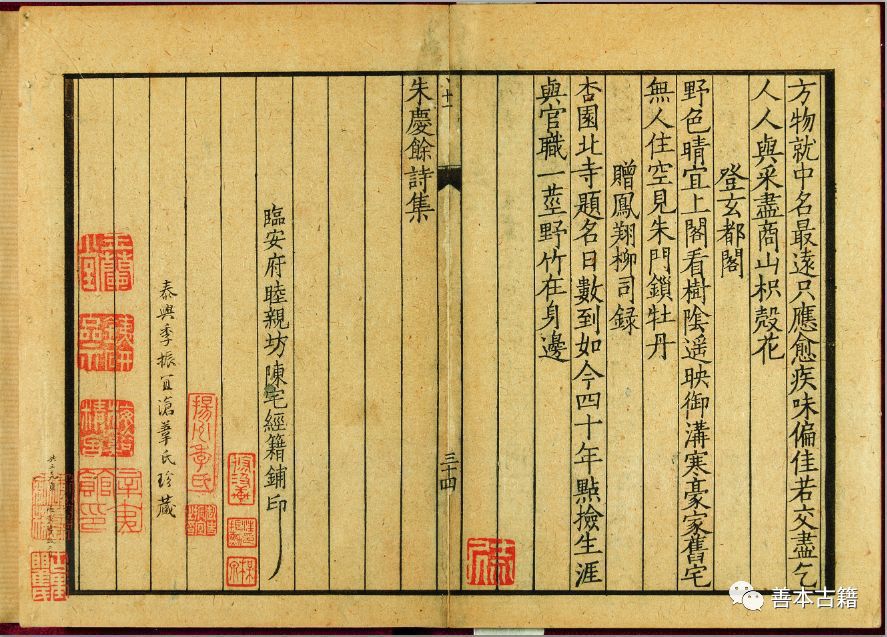 方物就中名最遠只應愈疾味偏佳若交盡乞
人人與采盡商山枳殼花
登玄都閣
野色晴宜上閣看樹陰遥映御溝寒豪家舊宅
無人住空見朱門鎖牡丹
贈鳳翔柳司録
杏園北寺題名日數到如今四十年點撿生涯
與官職一莖野竹在身邊
三十四
朱慶餘詩集
臨安府睦親坊陳宅經籍鋪印
揚州季氏
泰興季振宜滄葦氏珍藏
善本古籍